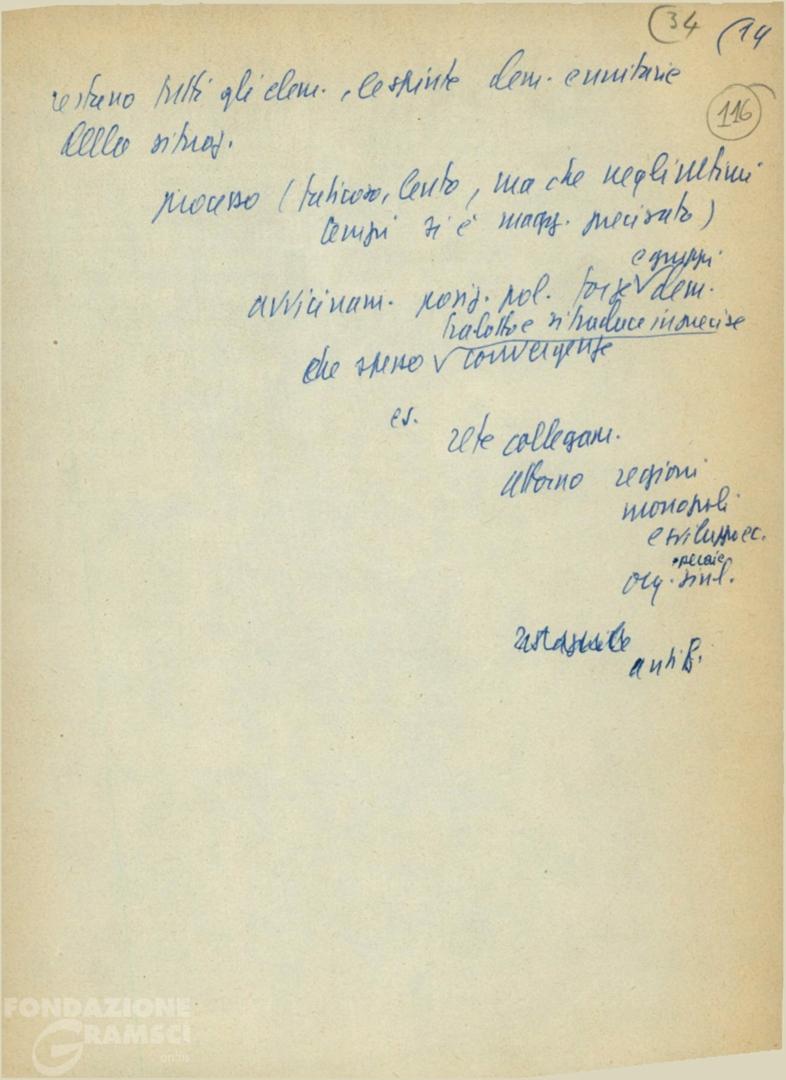 (34 (14
116
restano tutti gli elem., le spinte dem. e unitarie
della situaz.
processo (faticoso, lento, ma che negli ultimi
tempi si è magg. precisato)
e gruppi
avvicinam. posiz. pol. forze √ dem.
tralotto e si traduce in precise
che spesso √ convergenze
es.
rete collegam.
attorno regioni
monopoli
e svilupp ec.
operaie
org. sind.
antif.
FONDAZIONE
GRAMSCI
onlus